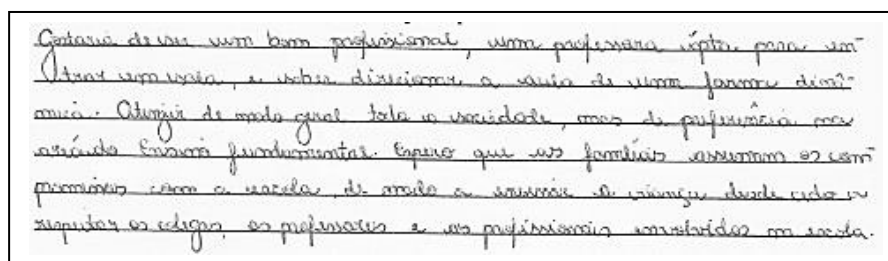 Gostaria de ser um bom profissional, uma professora ápta para en-
trar em sala, e saber direcionar a aula de uma forma dinâ-
mica. Atingir de modo geral toda a sociedade, mas de preferência na
area do Ensino fundamental. Espero que as famílias assumam os com
promissos com a escola, de modo a ensinar a criança desde cedo a
respeitar os colegas, os professores e os profissionais envolvidos na escola.